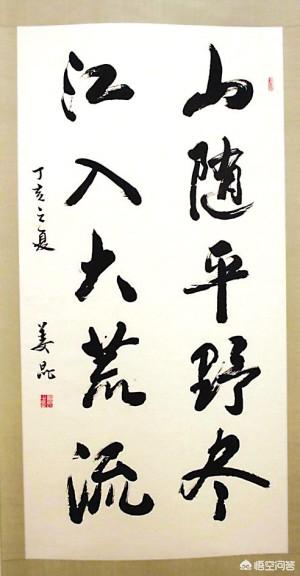 山随平野尽
江入大荒流
丁亥之夏
姜昆
悟空问答